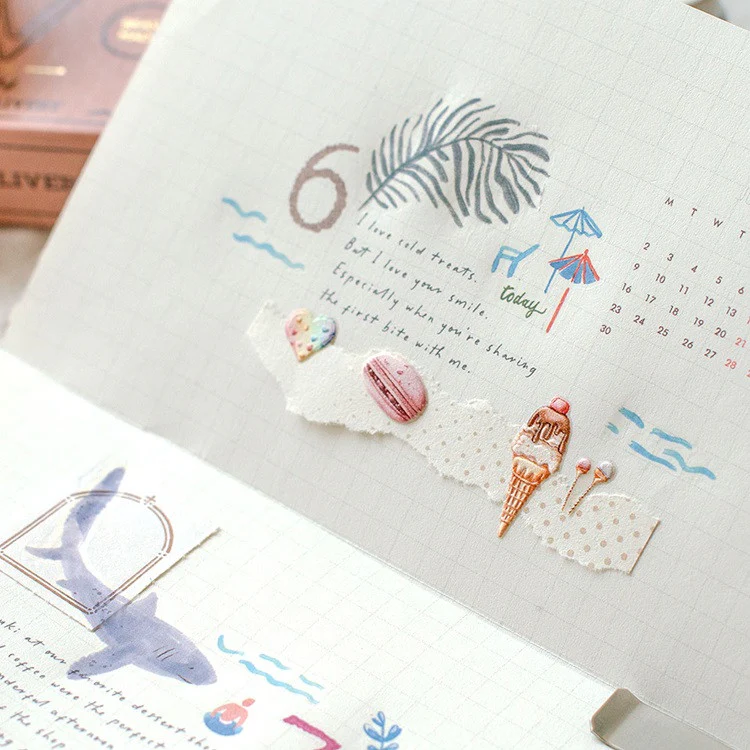 LIVER
6
M T W T
2 3 4 5 6
9 10 11 12 13
16 17 18 19 20 21
23 24 25 26 27 28
30
I love cold treats.
But I love your smile.
Especially when you're sharing
the first bite with me.
today
at our favorite dessert
coffee were the perfect
afternoon
the shop
7